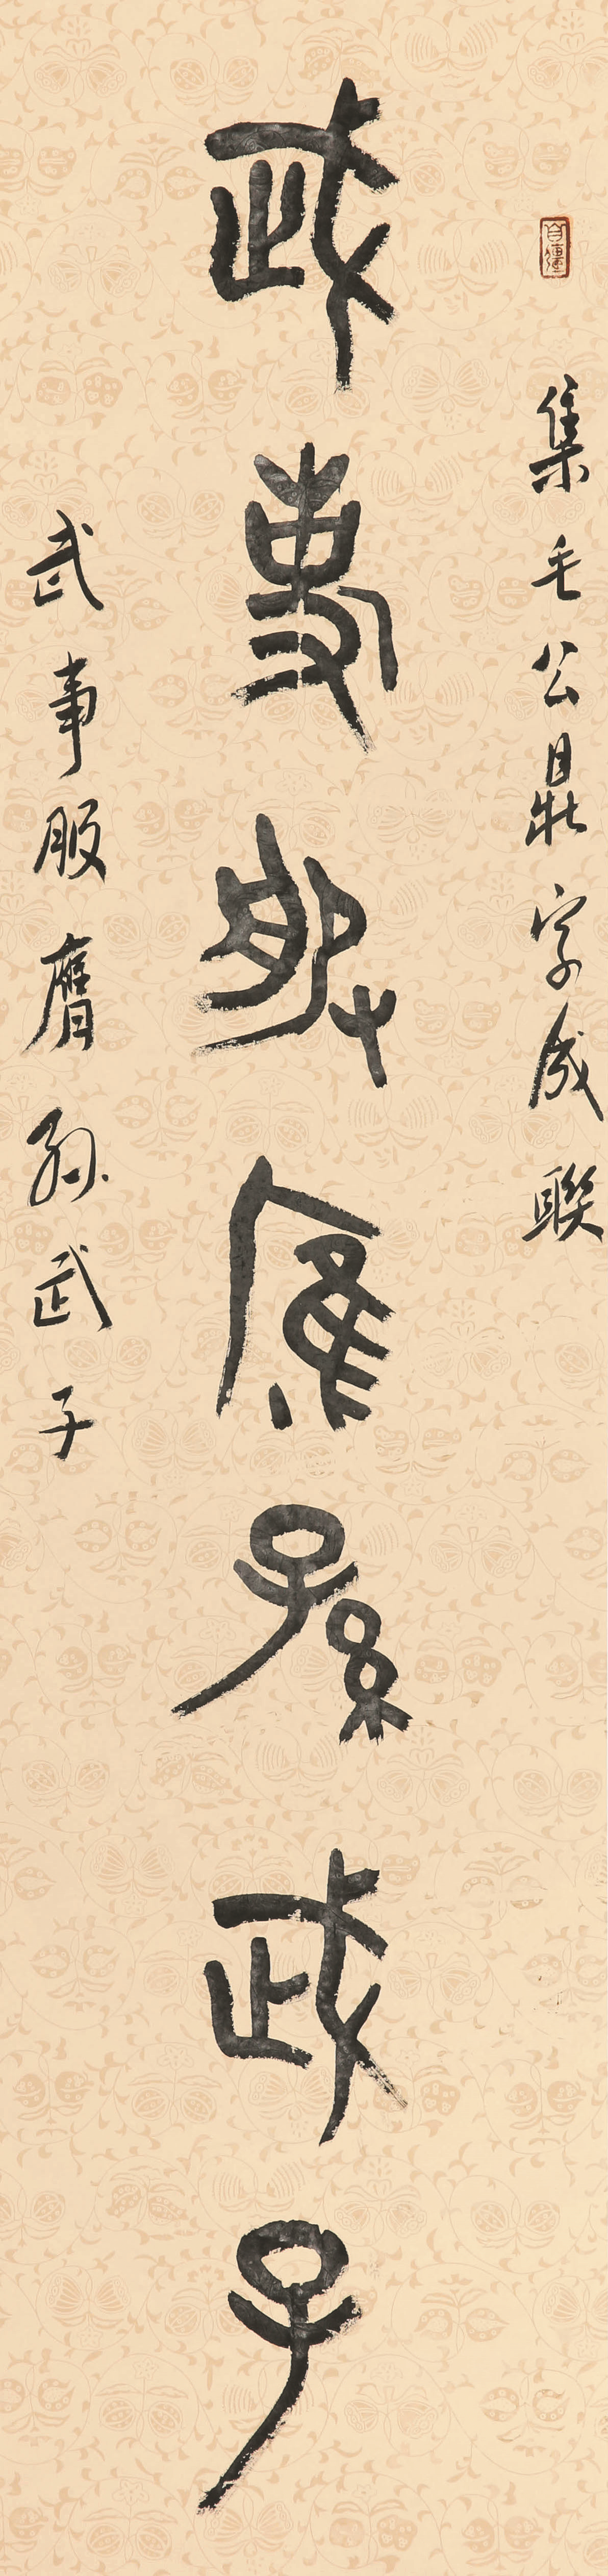 集毛公鼎字成联
武事服膺孙武子
武事服膺孙武子